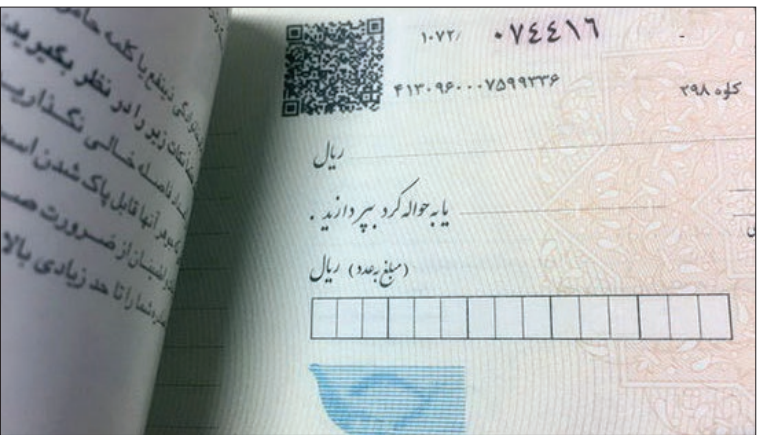 ۱۰۷۲/ ۰۷٤٤۱٦
۴۱۳۰۹۶۰۰۰۷۵۹۹۳۳۶
کاوه ۲۹۸
ریال
یا به حواله کرد بپردازید .
(مبلغ به عدد) ریال
نفع یا کلمه حامل
نکات زیر را در نظر بگیرید:
فاصله خالی نگذارید
آنها قابل پاک شدن است
اطمینان از ضرورت
شما را تا حد زیادی بالا